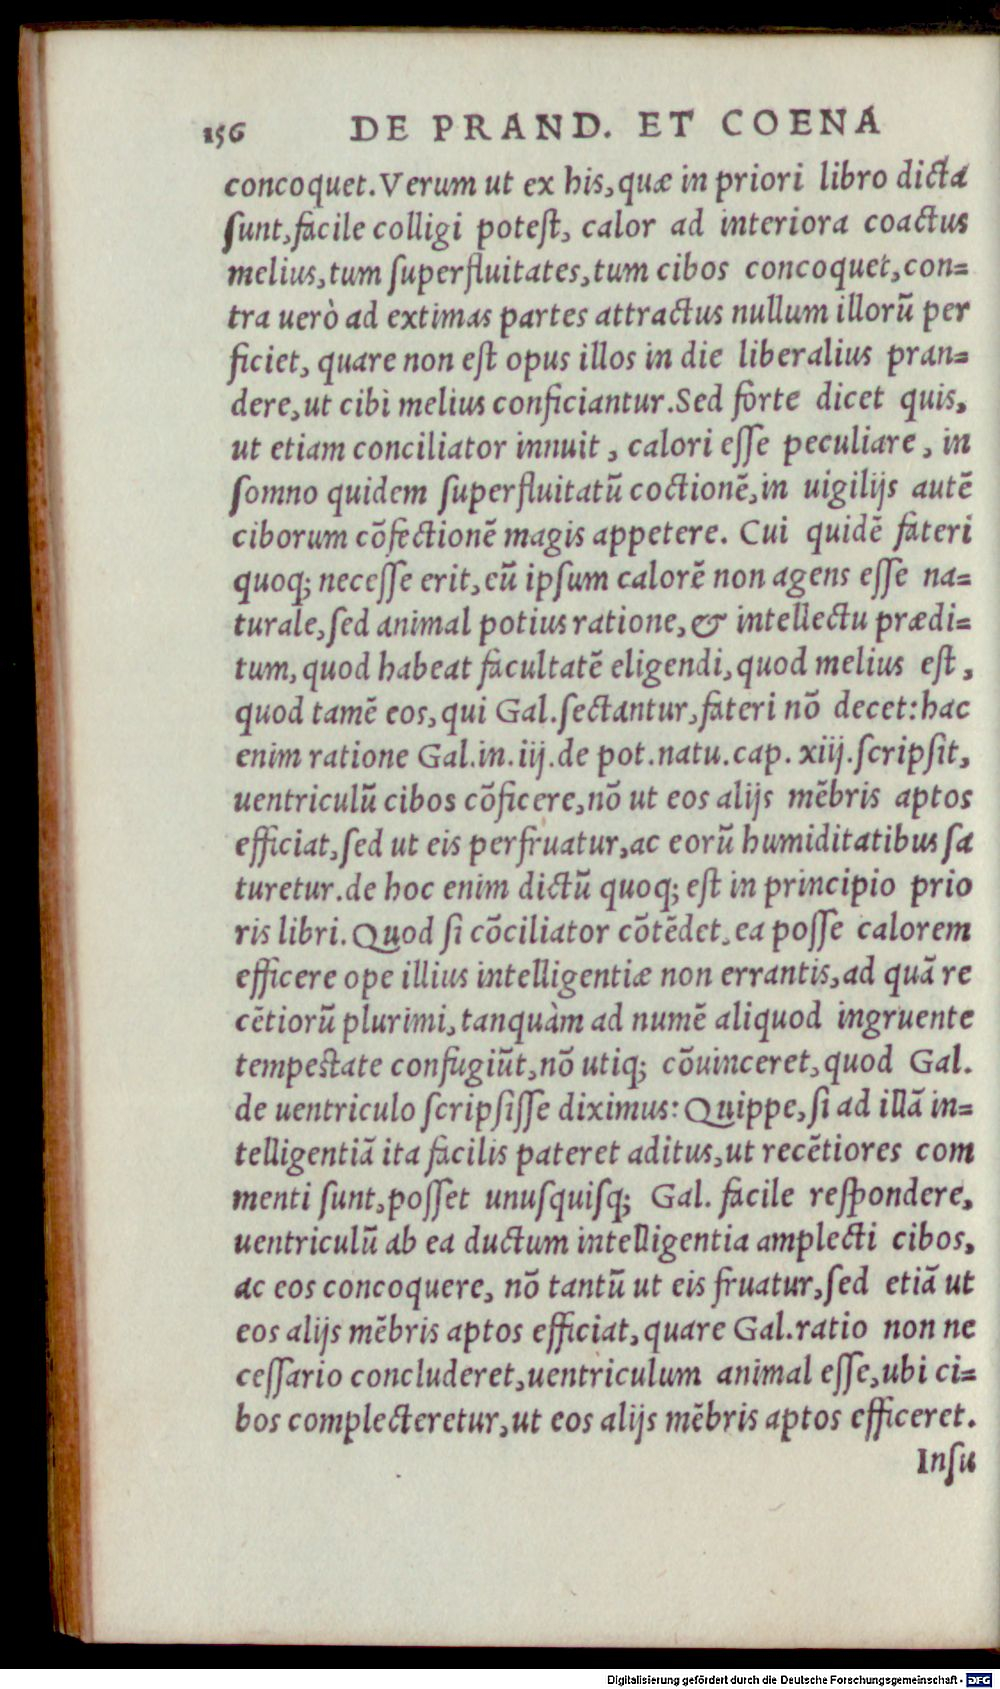 156 DE PRAND. ET COENA
concoquet. Verum ut ex his, quæ in priori libro dicta
ſunt, facile colligi poteſt, calor ad interiora coactus
melius, tum ſuperfluitates, tum cibos concoquet, con=
tra uerò ad extimas partes attractus nullum illorũ per
ficiet, quare non eſt opus illos in die liberalius pran=
dere, ut cibi melius conficiantur. Sed forte dicet quis,
ut etiam conciliator innuit, calori eſſe peculiare, in
ſomno quidem ſuperfluitatũ coctionẽ, in uigilijs autẽ
ciborum cõfectionẽ magis appetere. Cui quidẽ fateri
quoq; neceſſe erit, eũ ipſum calorẽ non agens eſſe na=
turale, ſed animal potius ratione, & intellectu prædi=
tum, quod habeat facultatẽ eligendi, quod melius eſt,
quod tamẽ eos, qui Gal. ſectantur, fateri nõ decet: hac
enim ratione Gal. in. iij. de pot. natu. cap. xiij. ſcripſit,
uentriculũ cibos cõficere, nõ ut eos alijs mẽbris aptos
efficiat, ſed ut eis perfruatur, ac eorũ humiditatibus ſa
turetur. de hoc enim dictũ quoq; eſt in principio prio
ris libri. Quod ſi cõciliator cõtẽdet, ea poſſe calorem
efficere ope illius intelligentiæ non errantis, ad quã re
cẽtiorũ plurimi, tanquàm ad numẽ aliquod ingruente
tempeſtate confugiũt, nõ utiq; cõuinceret, quod Gal.
de uentriculo ſcripſiſſe diximus: Quippe, ſi ad illã in=
telligentiã ita facilis pateret aditus, ut recẽtiores com
menti ſunt, poſſet unuſquiſq; Gal. facile reſpondere,
uentriculũ ab ea ductum intelligentia amplecti cibos,
ac eos concoquere, nõ tantũ ut eis fruatur, ſed etiã ut
eos alijs mẽbris aptos efficiat, quare Gal. ratio non ne
ceſſario concluderet, uentriculum animal eſſe, ubi ci=
bos complecteretur, ut eos alijs mẽbris aptos efficeret.
Inſu
Digitalisierung gefördert durch die Deutsche Forschungsgemeinschaft - DFG